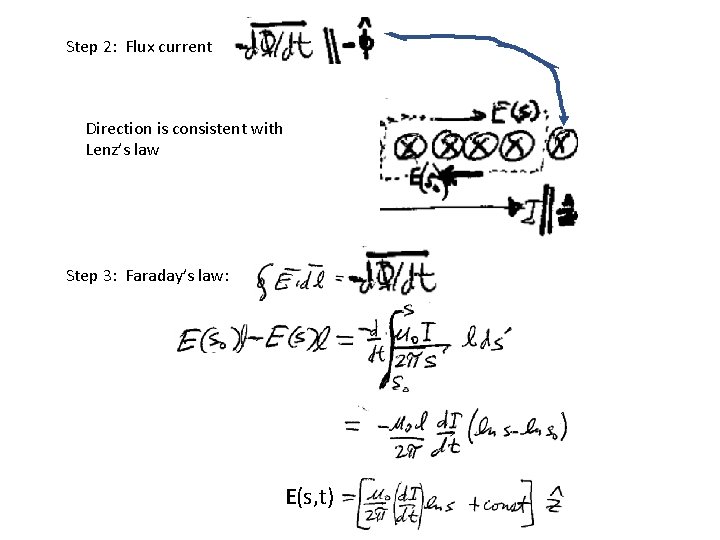 Step 2: Flux current
-dΦ/dt ∥ -φ̂
Direction is consistent with
Lenz's law
E(s)
E(s₀)
I ∥ ẑ
Step 3: Faraday's law:
∮ E̅·dl̅ = -dΦ/dt
E(s₀)l - E(s)l = -d/dt ∫_{s₀}^{s} μ₀I/2πs' l ds'
= -μ₀l/2π dI/dt (ln s - ln s₀)
E(s,t) = [μ₀/2π (dI/dt) ln s + const] ẑ